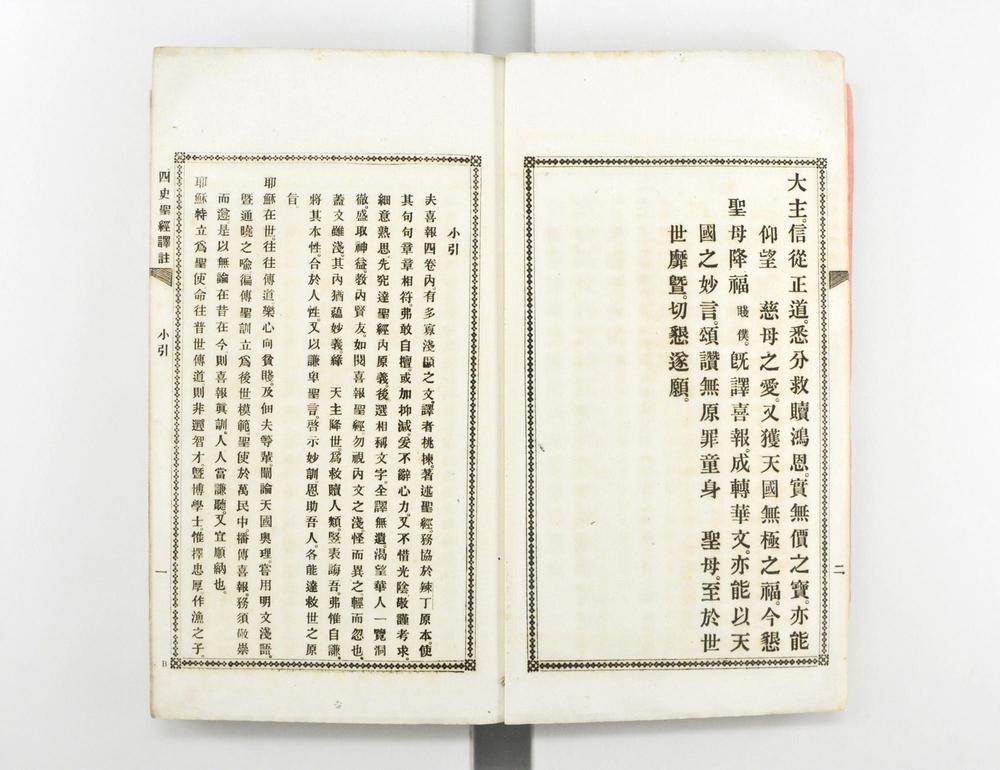 大主。信從正道。悉分救贖鴻恩。實無價之寶。亦能
仰望　慈母之愛。又獲天國無極之福。今懇
聖母降福　賤僕。既譯喜報。成轉華文。亦能以天
國之妙言。頌讚無原罪童身　聖母。至於世
世靡曁。切懇遂願。
二
小引
夫喜報四卷內有多寡淺顯之文。譯者挑揀著述聖經。務協於辣丁原本。使
其句句章章相符。弗敢自擅。或加抑減。爰不辭心力。又不惜光陰敬謹考求。
細意熟思。先究達聖經內原義後選相稱文字。全譯無遺。渴望華人一覽洞
徹。盛取神益。教內賢友如閱喜報聖經勿視內文之淺。怪而異之輕而忽也。
蓋文雖淺。其內猶蘊妙義緣　天主降世。爲救贖人類。暨表誨吾。弗惟自謙。
將其本性。合於人性。又以謙卑聖言。啓示妙訓恩助吾人。各能達救世之原
旨。
耶穌在世。往往傳道樂心向貧賤。及佃夫等輩。闡論天國奧理。嘗用明文淺語。
曁通曉之喩。徧傳聖訓立爲後世模範聖使於萬民中。播傳喜報務須敬崇
而遵。是以無論在昔在今。則喜報眞訓。人人當謙聽。又宜順納也。
耶穌特立爲聖使命往普世傳道則非遲智才。曁博學士。惟擇忠厚。作漁之子。
四史聖經譯註
小引
一
B